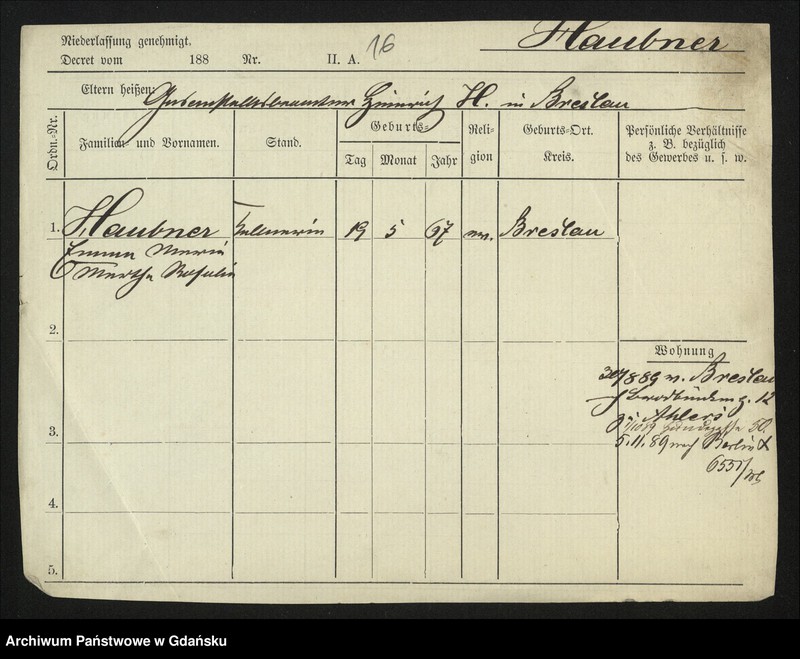 Haubner
Niederlassung genehmigt.
Decret vom 188 Nr. II. A. 16
Eltern heißen: Heinrich H. in Breslau
Ordn.-Nr.
Familien- und Vornamen.
Stand.
Geburts-
Tag Monat Jahr
Reli-
gion
Geburts-Ort.
Kreis.
Persönliche Verhältnisse
z. B. bezüglich
des Gewerbes u. s. w.
1. Haubner Kellnerin 19 5 67 ev. Breslau
Emma Maria
Martha Rosalie
2.
Wohnung
8 89 v. Breslau
12
Ahlers
50.
3.
5.11.89 nach Berlin
4.
5.
Archiwum Państwowe w Gdańsku